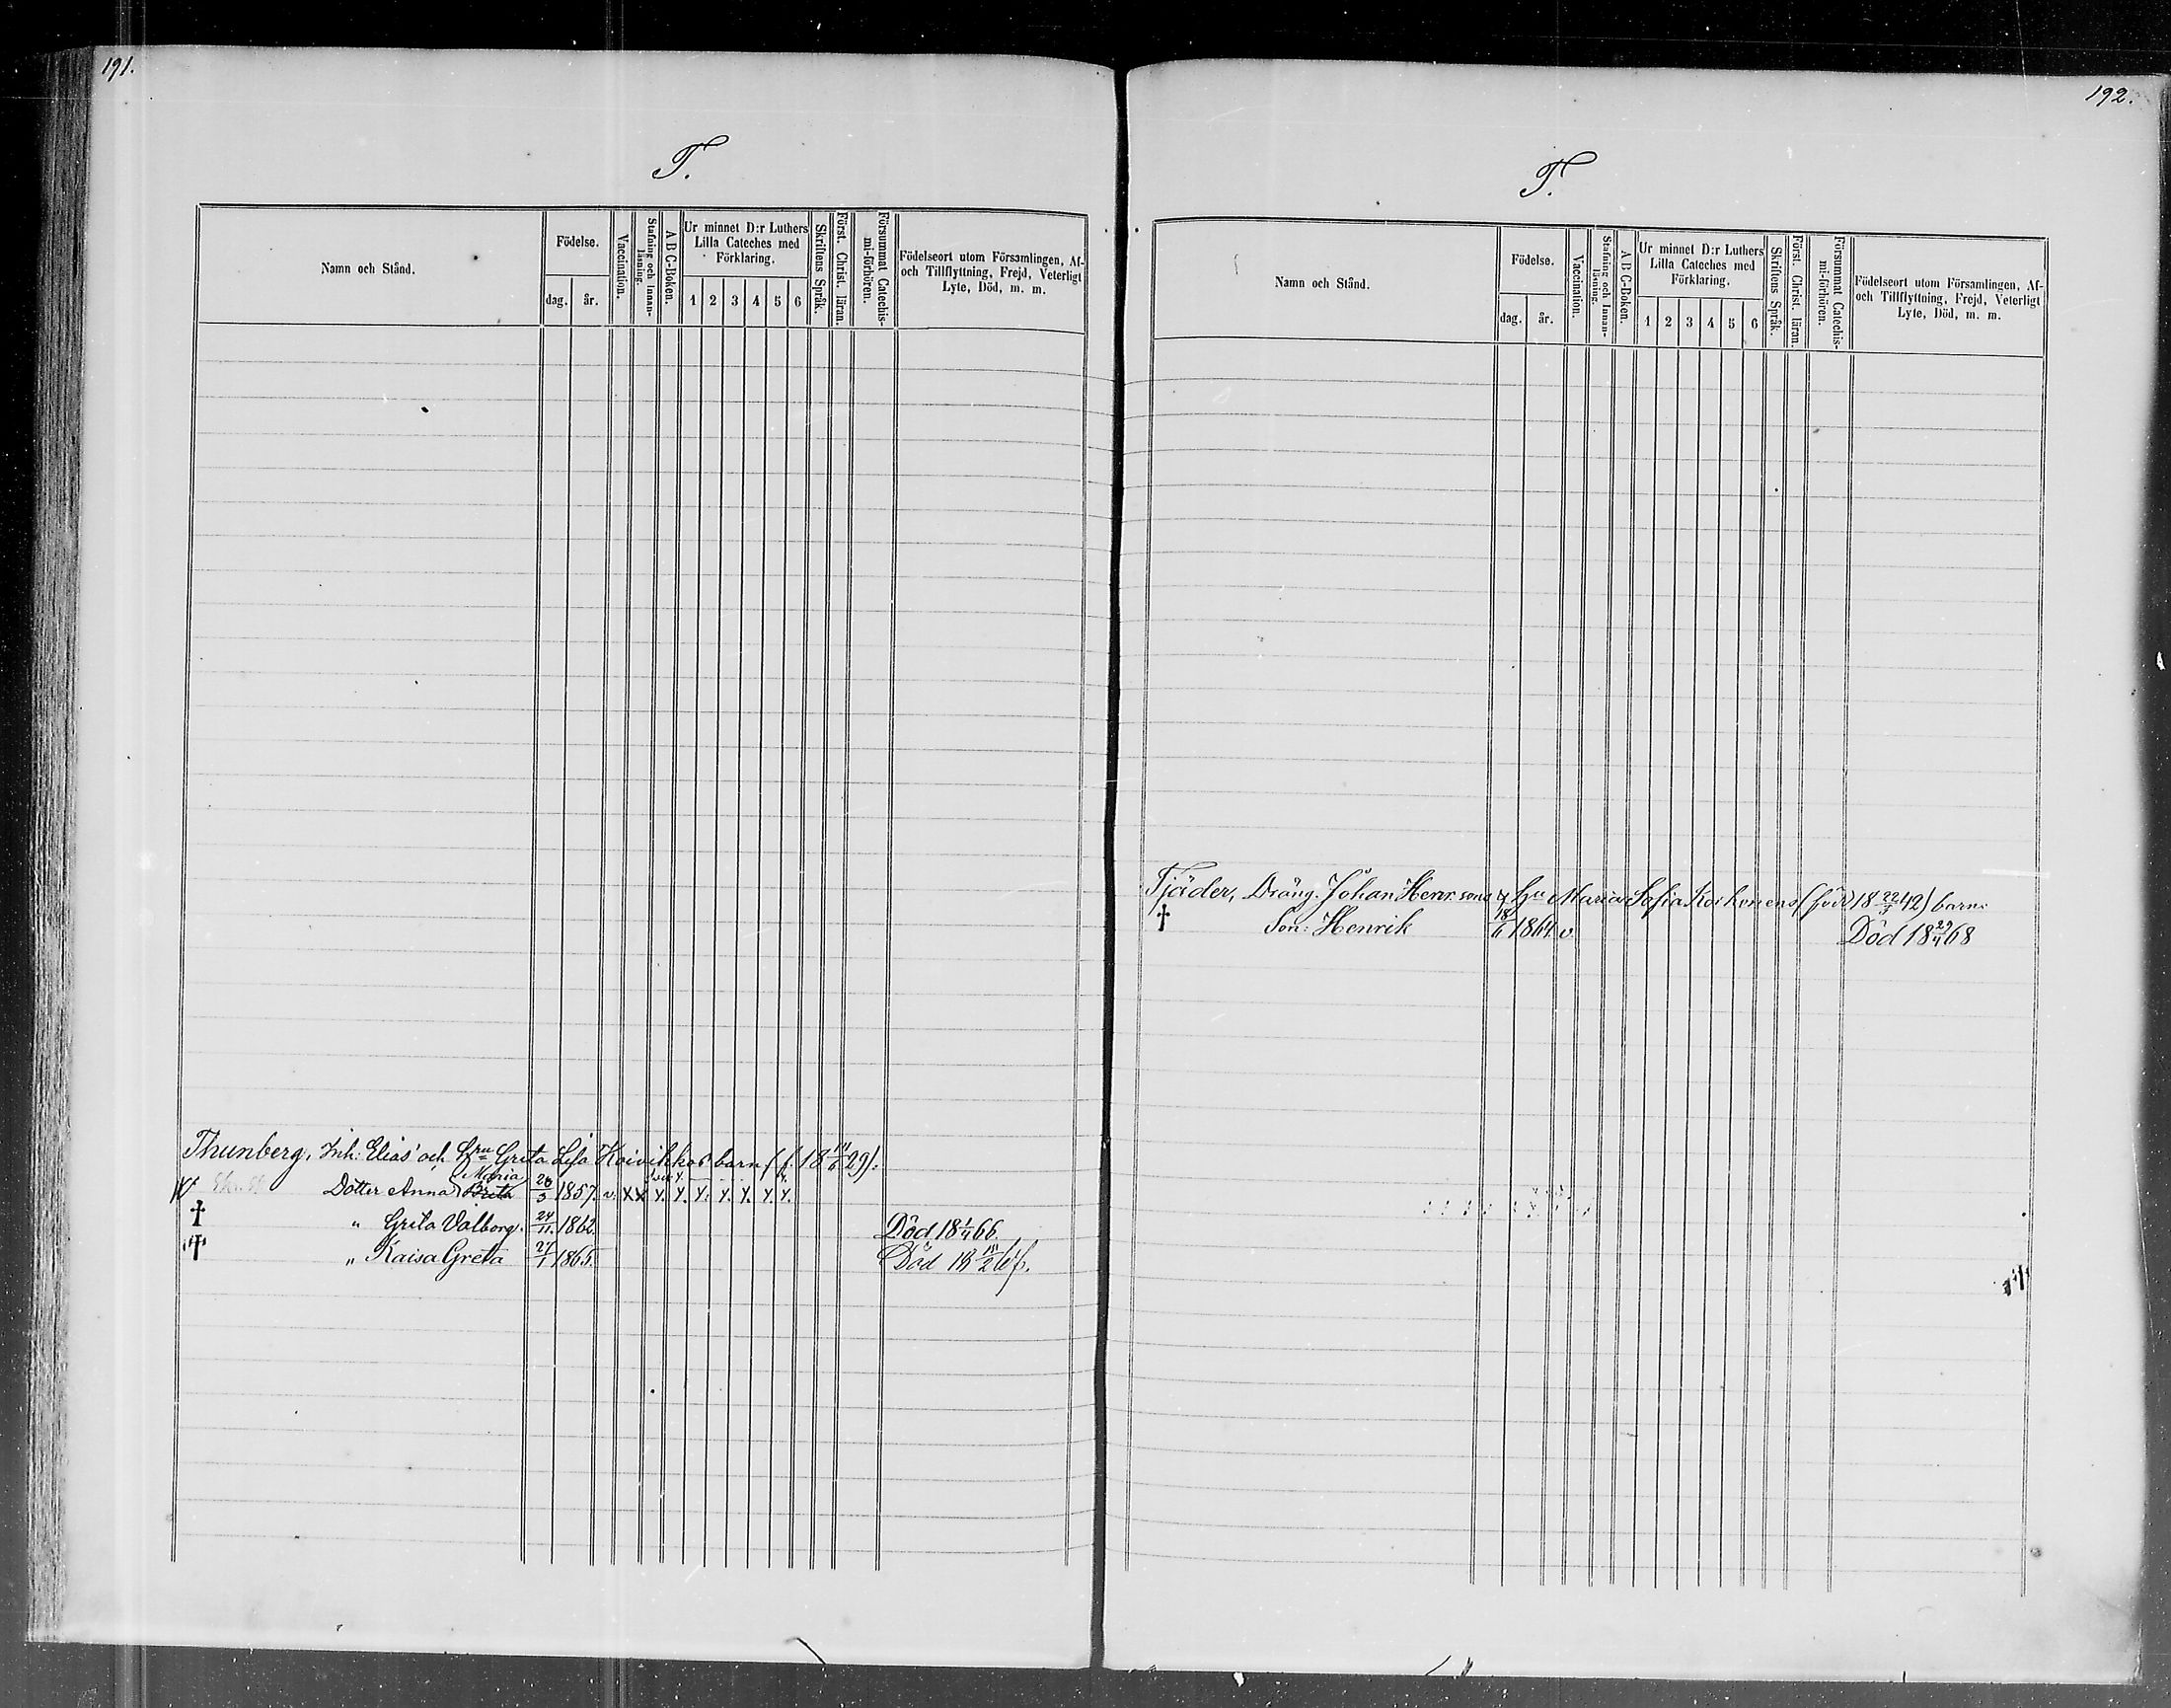 191.
T.
Namn och Stånd.
Födelse.
dag.
år.
Vaccination.
Stafning och Innan-
läsning.
A B C-Boken.
Ur minnet D:r Luthers
Lilla Cateches med
Förklaring.
1 2 3 4 5 6
Skriftens Språk.
Först. Christ. läran.
Försummat Catechis-
mi-förhören.
Födelseort utom Församlingen, Af-
och Tillflyttning, Frejd, Veterligt
Lyte, Död, m. m.
Thunberg, Inh: Elias och Greta Lisa Koivikkos barn (f. 18 29).
Maria
Dotter Anna Brita 1857. v. x x
" Greta Valborg. 24/11. 1862. Död 18 1/4 66.
" Kaisa Greta 1865. Död 18
192.
T.
Namn och Stånd.
Födelse.
dag.
år.
Vaccination.
Stafning och Innan-
läsning.
A B C-Boken.
Ur minnet D:r Luthers
Lilla Cateches med
Förklaring.
1 2 3 4 5 6
Skriftens Språk.
Först. Christ. läran.
Försummat Catechis-
mi-förhören.
Födelseort utom Församlingen, Af-
och Tillflyttning, Frejd, Veterligt
Lyte, Död, m. m.
Tjäder, Dräng. Johan Henr.sons Maria Sofia (född 18 22/3 42) barn:
Son: Henrik 18/6 1864. v. Död 18 29/4 68